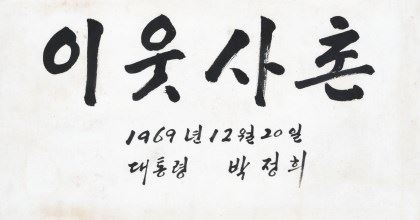 이웃사촌
1969년 12월 20일
대통령 박정희